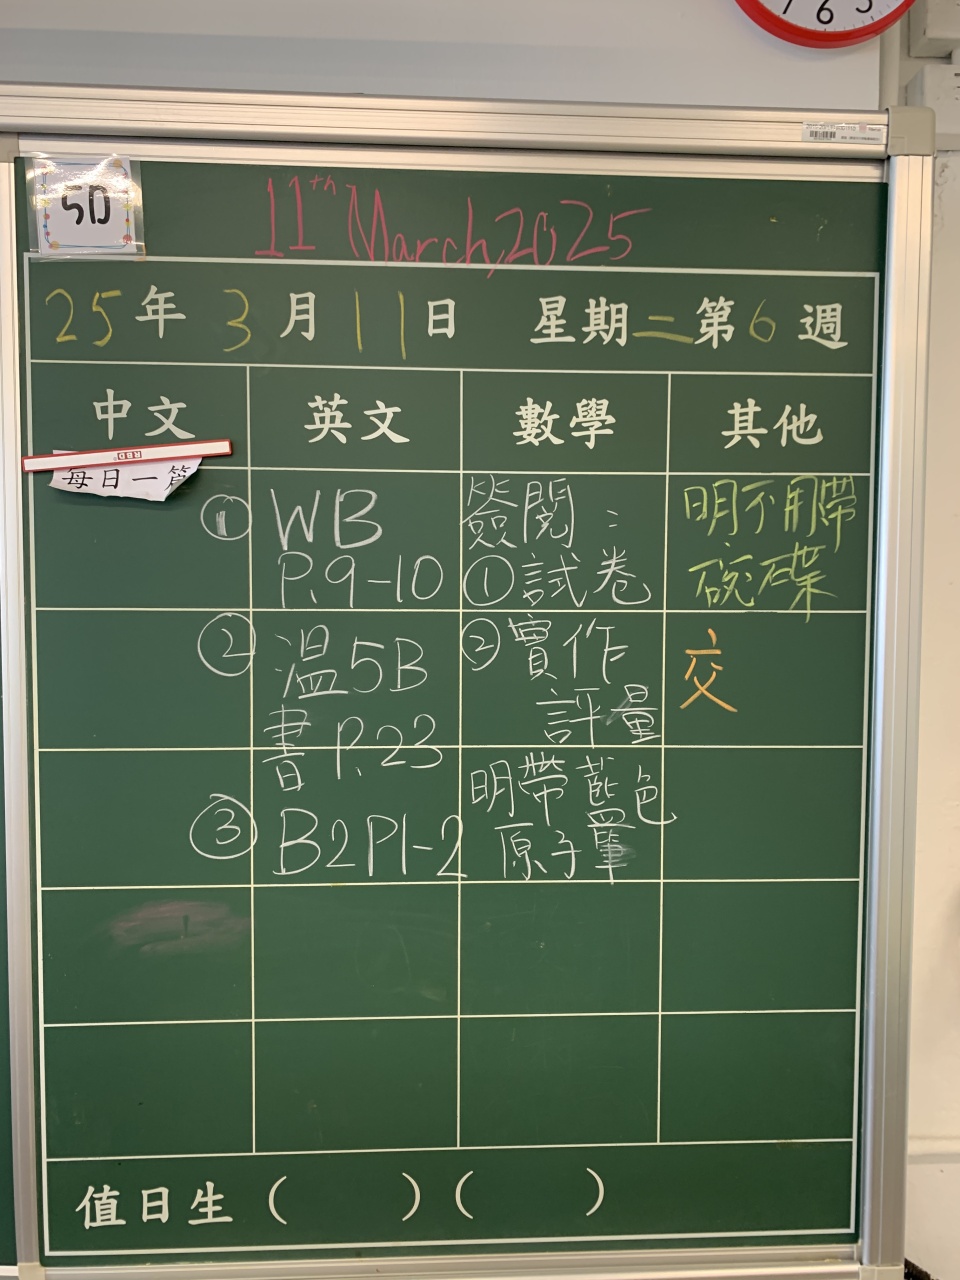 7 6 5
5D
11th March, 2025
25年 3月 11日 星期二 第6週
中文 英文 數學 其他
每日一篇
① WB
P.9-10
② 温5B
書 P.23
③ B2P1-2
簽閱：
①試卷
②實作
評量
明帶藍色
原子筆
明不用帶
碗碟
交
值日生（ ）（ ）